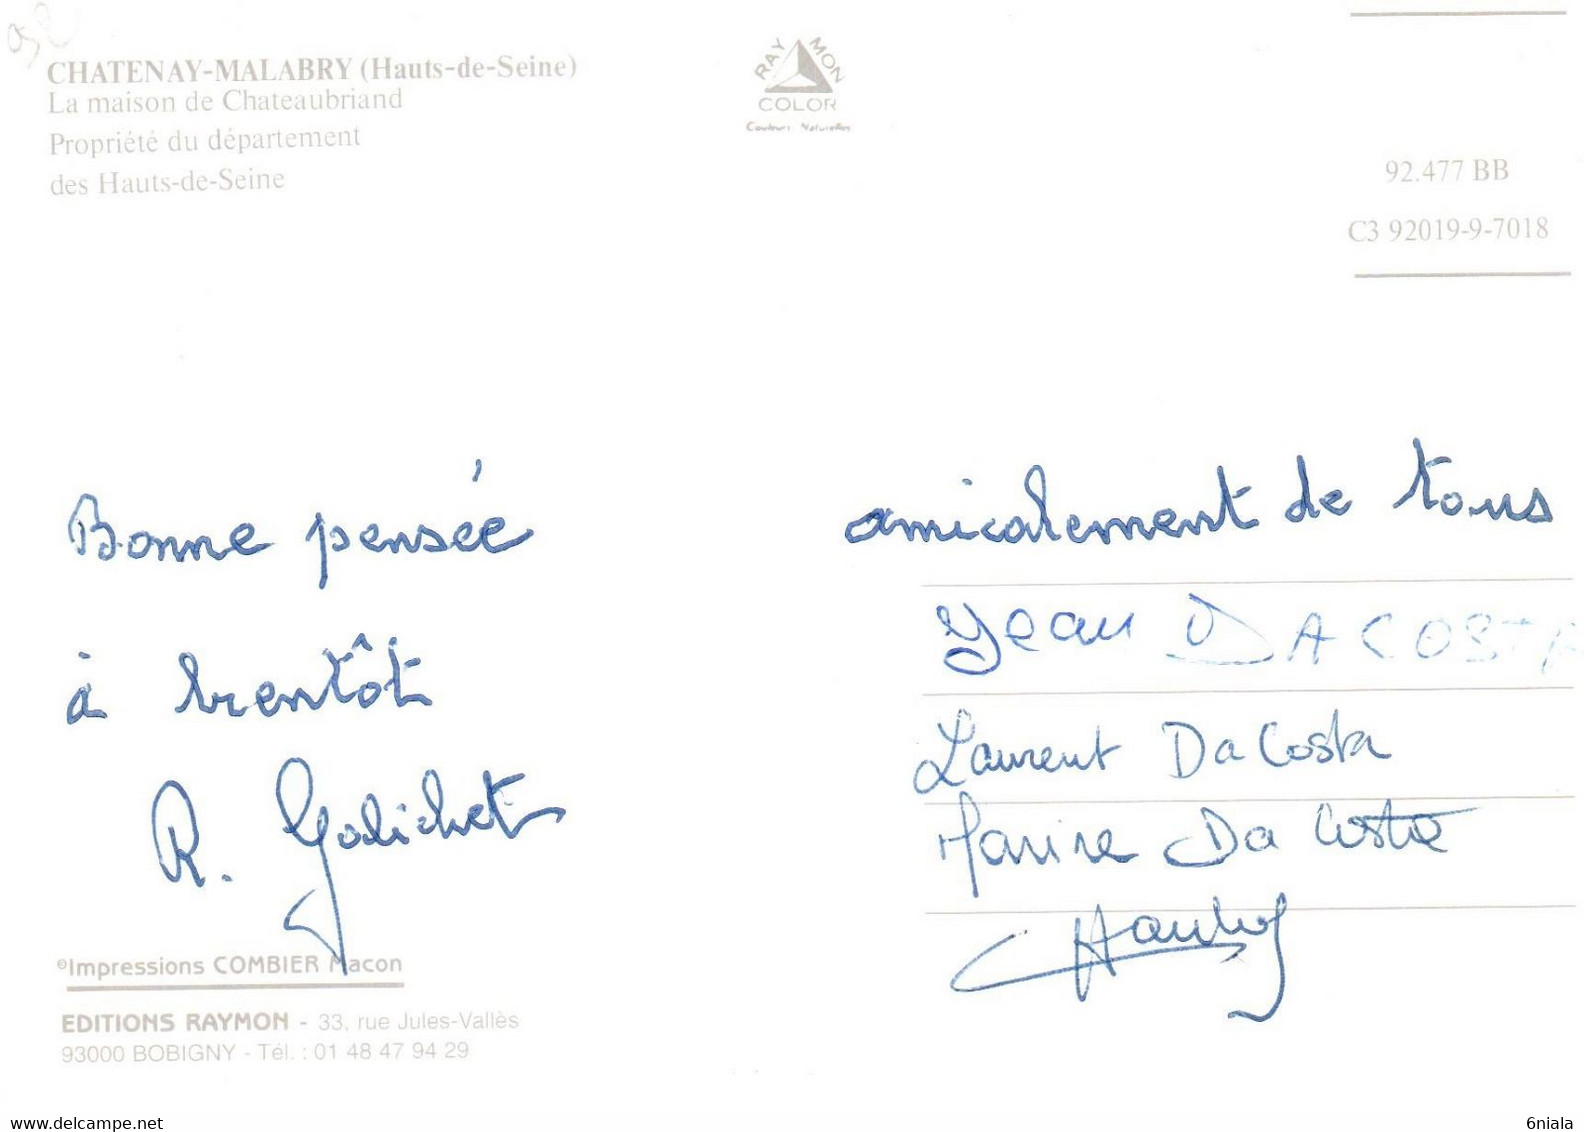 CHATENAY-MALABRY (Hauts-de-Seine)
La maison de Chateaubriand
Propriété du département
des Hauts-de-Seine
RAYMON
COLOR
Couleurs Naturelles
92.477 BB
C3 92019-9-7018
Bonne pensée
à bientôt
R. Galichet
amicalement de tous
Jean DA COSTA
Laurent Da Costa
Marine Da Costa
©Impressions COMBIER Macon
EDITIONS RAYMON - 33, rue Jules-Vallès
93000 BOBIGNY - Tél. : 01 48 47 94 29
www.delcampe.net
6niala